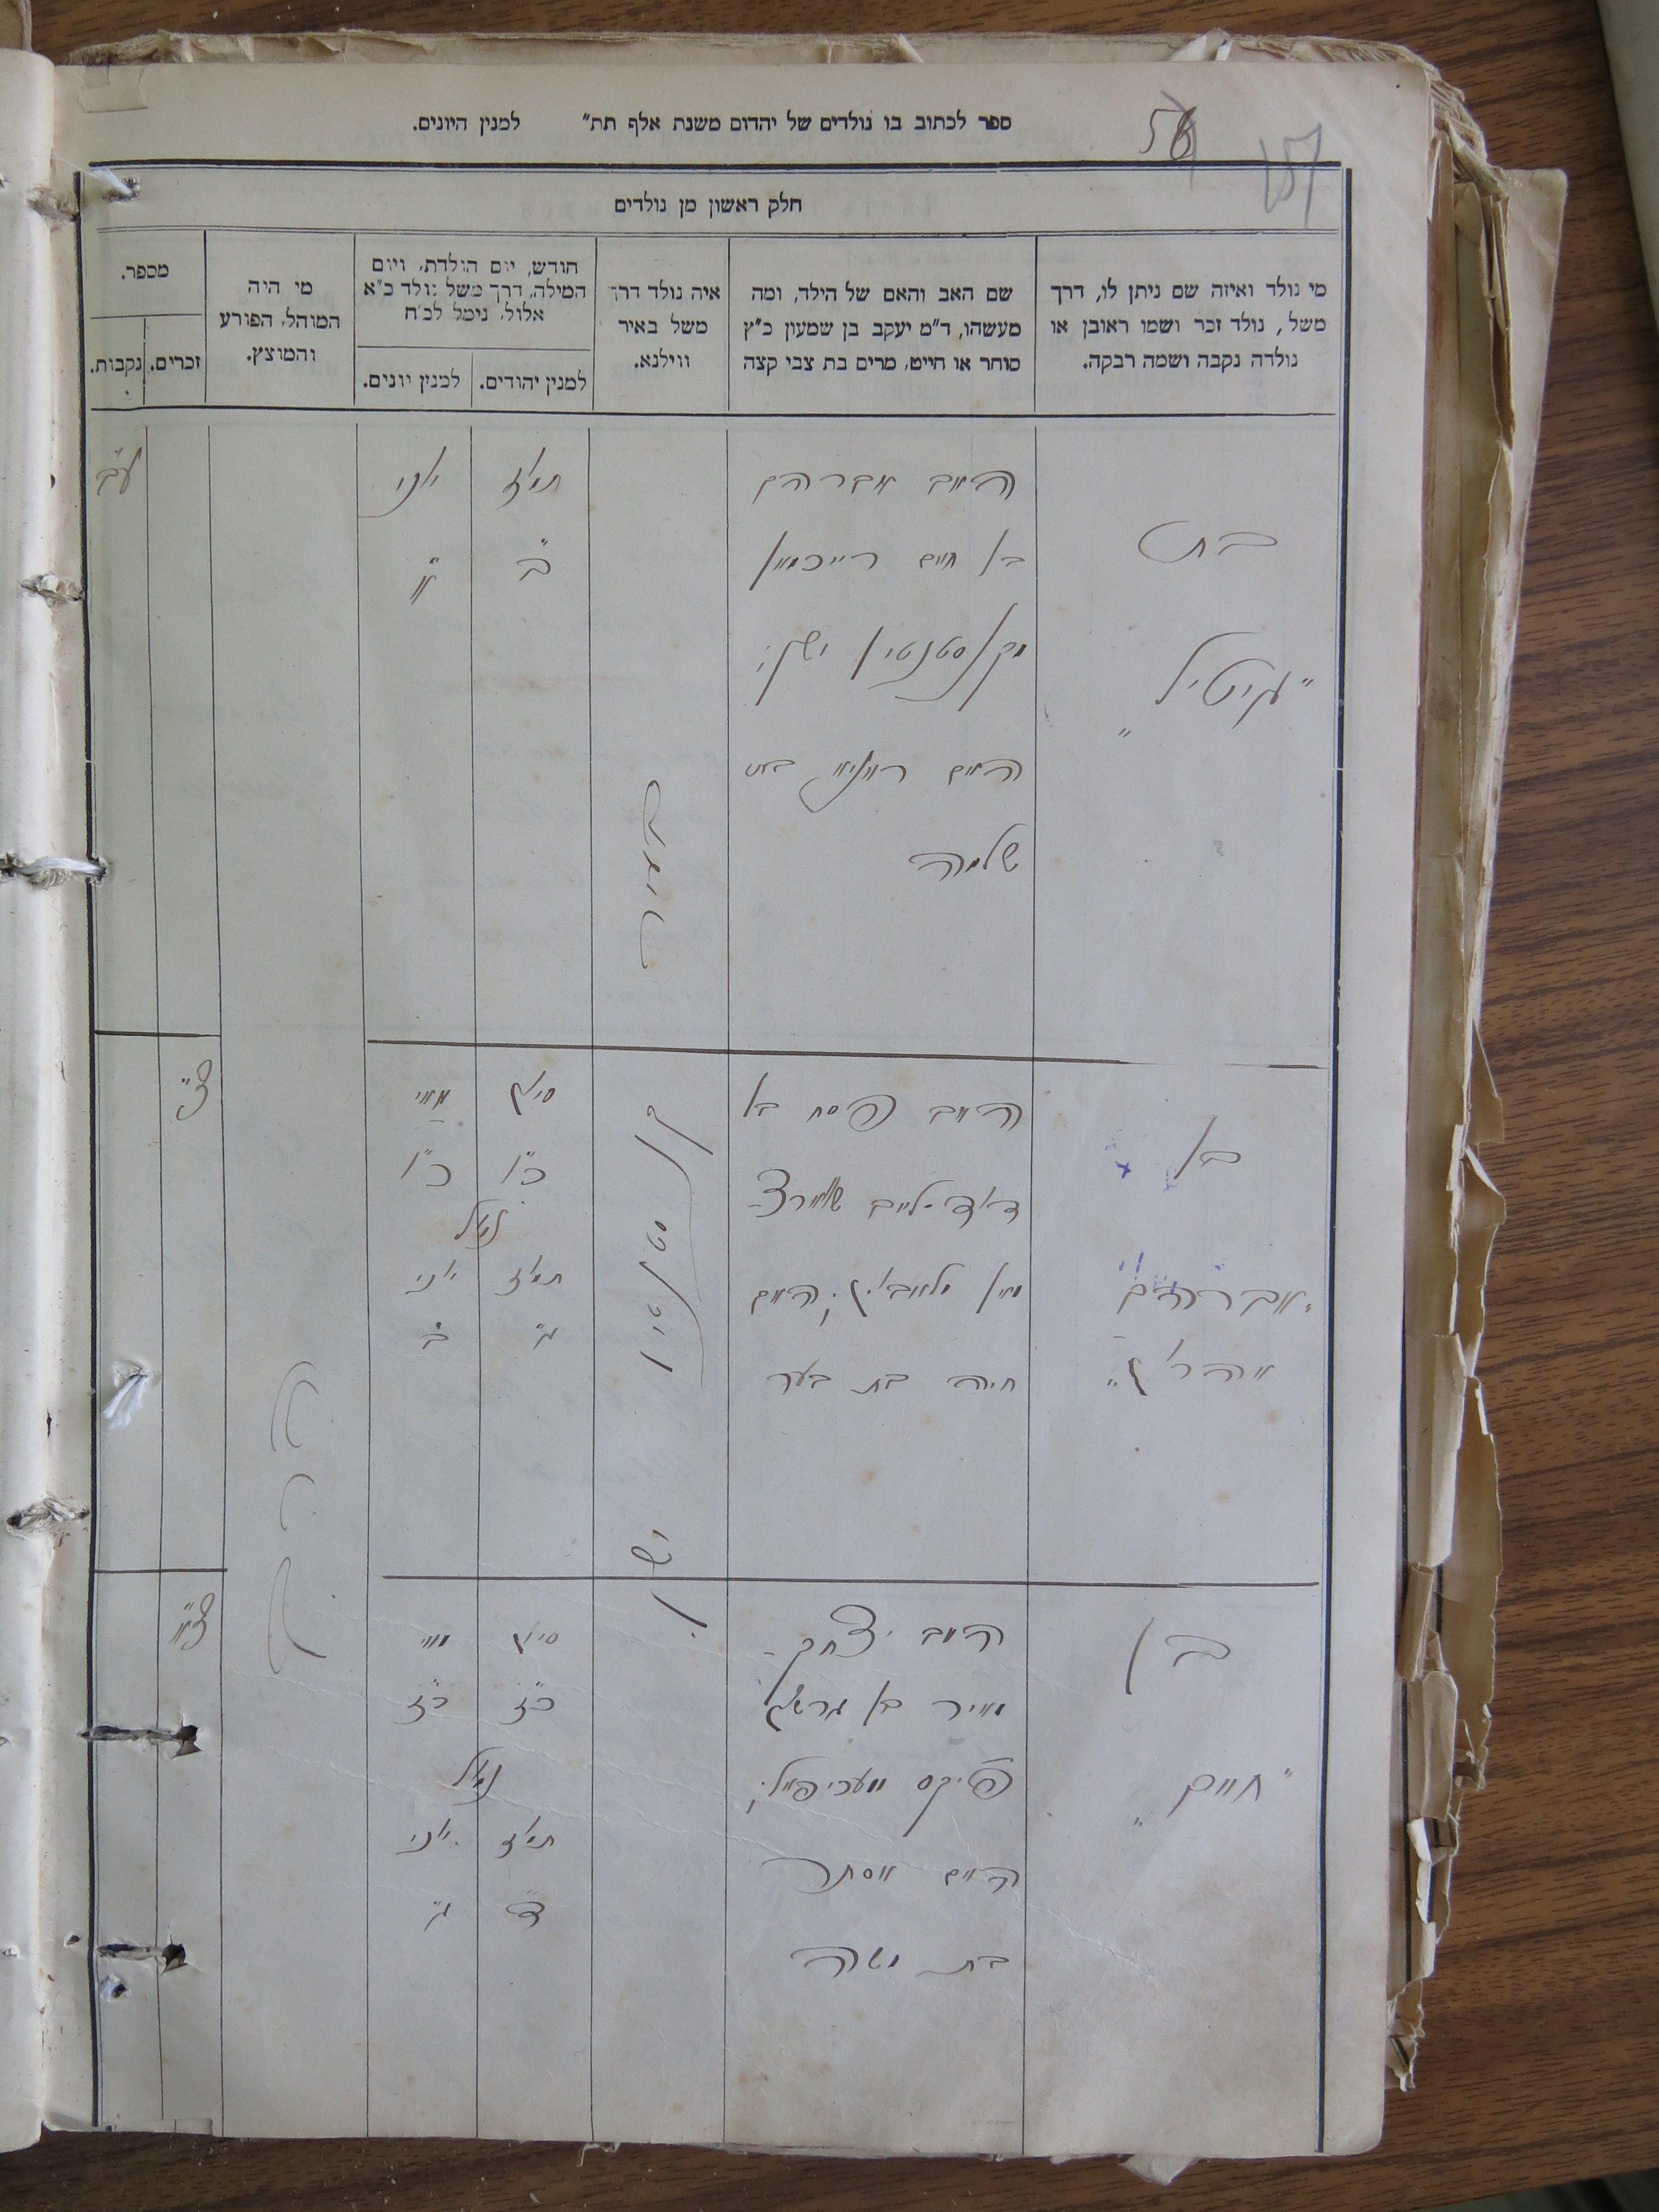 ספר לכתוב בו נולדים של יהדום משנת אלף תת״ למנין היונים.
56
57
חלק ראשון מן נולדים
מי נולד ואיזה שם ניתן לו, דרך
משל, נולד זכר ושמו ראובן או
נולדה נקבה ושמה רבקה.
שם האב והאם של הילד, ומה
מעשהו, ד״מ יעקב בן שמעון כ״ץ
סוחר או חייט, מרים בת צבי קצה
איה נולד דרך
משל באיר
ווילנא.
חודש, יום הולדת, ויום
המילה, דרך משל נולד כ״א
אלול, נימל לכ״ח
למנין יהודים.
למנין יונים.
מי היה
המוהל, הפורע
והמוצץ.
מספר.
זכרים.
נקבות.
בת
״גיטיל״
האב אברהם
בן חיים רייכמאן
מקאנסטנטין ישן;
האם
בת
שלמה
תמוז
ב״
יוני
א״
ע״ב
בעיר
קאנסטנטין
ישן.
בן
״אברהם
אהרן״
האב פסח בן
דוד-לייב שווארץ
האם
חיה בת בער
סיון
כ״ו
מאי
כ״ו
נימול
תמוז
ג״
יוני
ב״
צ״
בן
״חיים״
האב יצחק-
מאיר בן גרשון
האם אסתר
בת משה
סיון
כ״ז
מאי
כ״ז
נימול
תמוז
ד״
יוני
ג״
צ״א